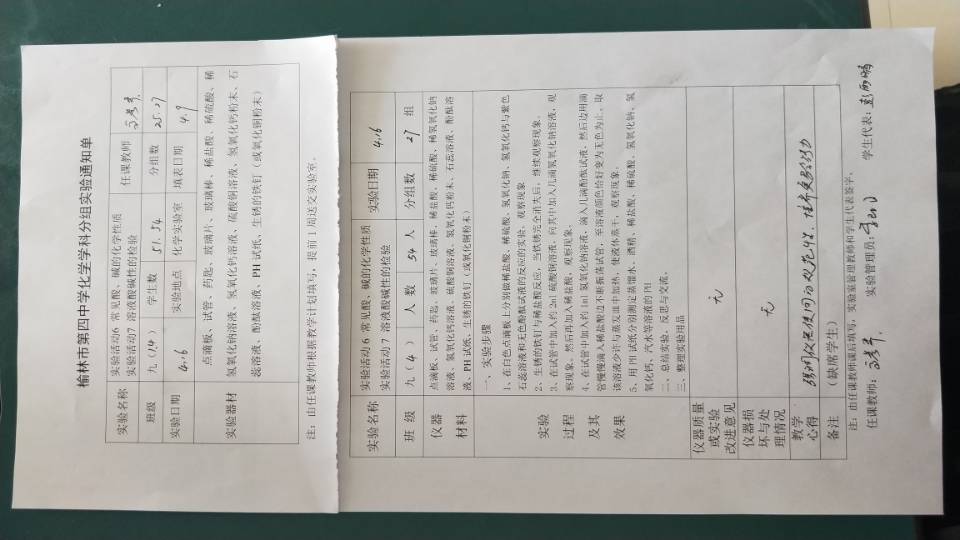 榆林市第四中学化学学科分组实验通知单
实验名称 实验活动6 常见酸、碱的化学性质 任课教师
实验活动7 溶液酸碱性的检验
班级 九(1,4) 学生数 51,54 分组数 25,27
实验日期 4.16 实验地点 化学实验室 填表日期 4.9
点滴板、试管、药匙、玻璃片、玻璃棒、稀盐酸、稀硫酸、稀
实验器材 氢氧化钠溶液、氢氧化钙溶液、硫酸铜溶液、氢氧化钙粉末、石
蕊溶液、酚酞溶液、PH试纸、生锈的铁钉(或氧化铜粉末)
注:由任课教师根据教学计划填写,提前1周送交实验室。
实验名称 实验活动6 常见酸、碱的化学性质 实验日期 4.16
实验活动7 溶液酸碱性的检验
班 级 九(4) 人 数 54 人 分组数 27 组
仪器 点滴板、试管、药匙、玻璃片、玻璃棒、稀盐酸、稀硫酸、稀氢氧化钠
溶液、氢氧化钙溶液、硫酸铜溶液、氢氧化钙粉末、石蕊溶液、酚酞溶
材料 液、PH试纸、生锈的铁钉(或氧化铜粉末)
一、实验步骤
1、在白色点滴板上分别做稀盐酸、稀硫酸、氢氧化钠、氢氧化钙与紫色
石蕊溶液和无色酚酞试液的反应的实验,观察现象。
2、生锈的铁钉与稀盐酸反应,当铁锈完全消失后,继续观察现象。
实验 3、在试管中加入约2ml硫酸铜溶液,向其中加入几滴氢氧化钠溶液,观
察现象,然后再加入稀盐酸,观察现象。
过程 4、在试管中加入约1ml氢氧化钠溶液,滴入几滴酚酞试液,然后边用滴
管慢慢滴入稀盐酸边不断振荡试管,至溶液颜色恰好变为无色为止,取
及其 该溶液少许与蒸发皿中加热,使液体蒸干,观察现象。
5、用PH试纸分别测定蒸馏水、酒精、稀盐酸、稀硫酸、氢氧化钠、氢
效果 氧化钙、汽水等溶液的PH
二、总结实验,反思与交流。
三、整理实验用品
仪器质量
或实验 无
改进意见
仪器损
坏与处 无
理情况
教学
心得 强调仪器使用的规范性
备注 (缺席学生)
注:由任课教师课后填写,实验室管理教师和学生代表签字。
任课教师: 实验管理员: 学生代表: